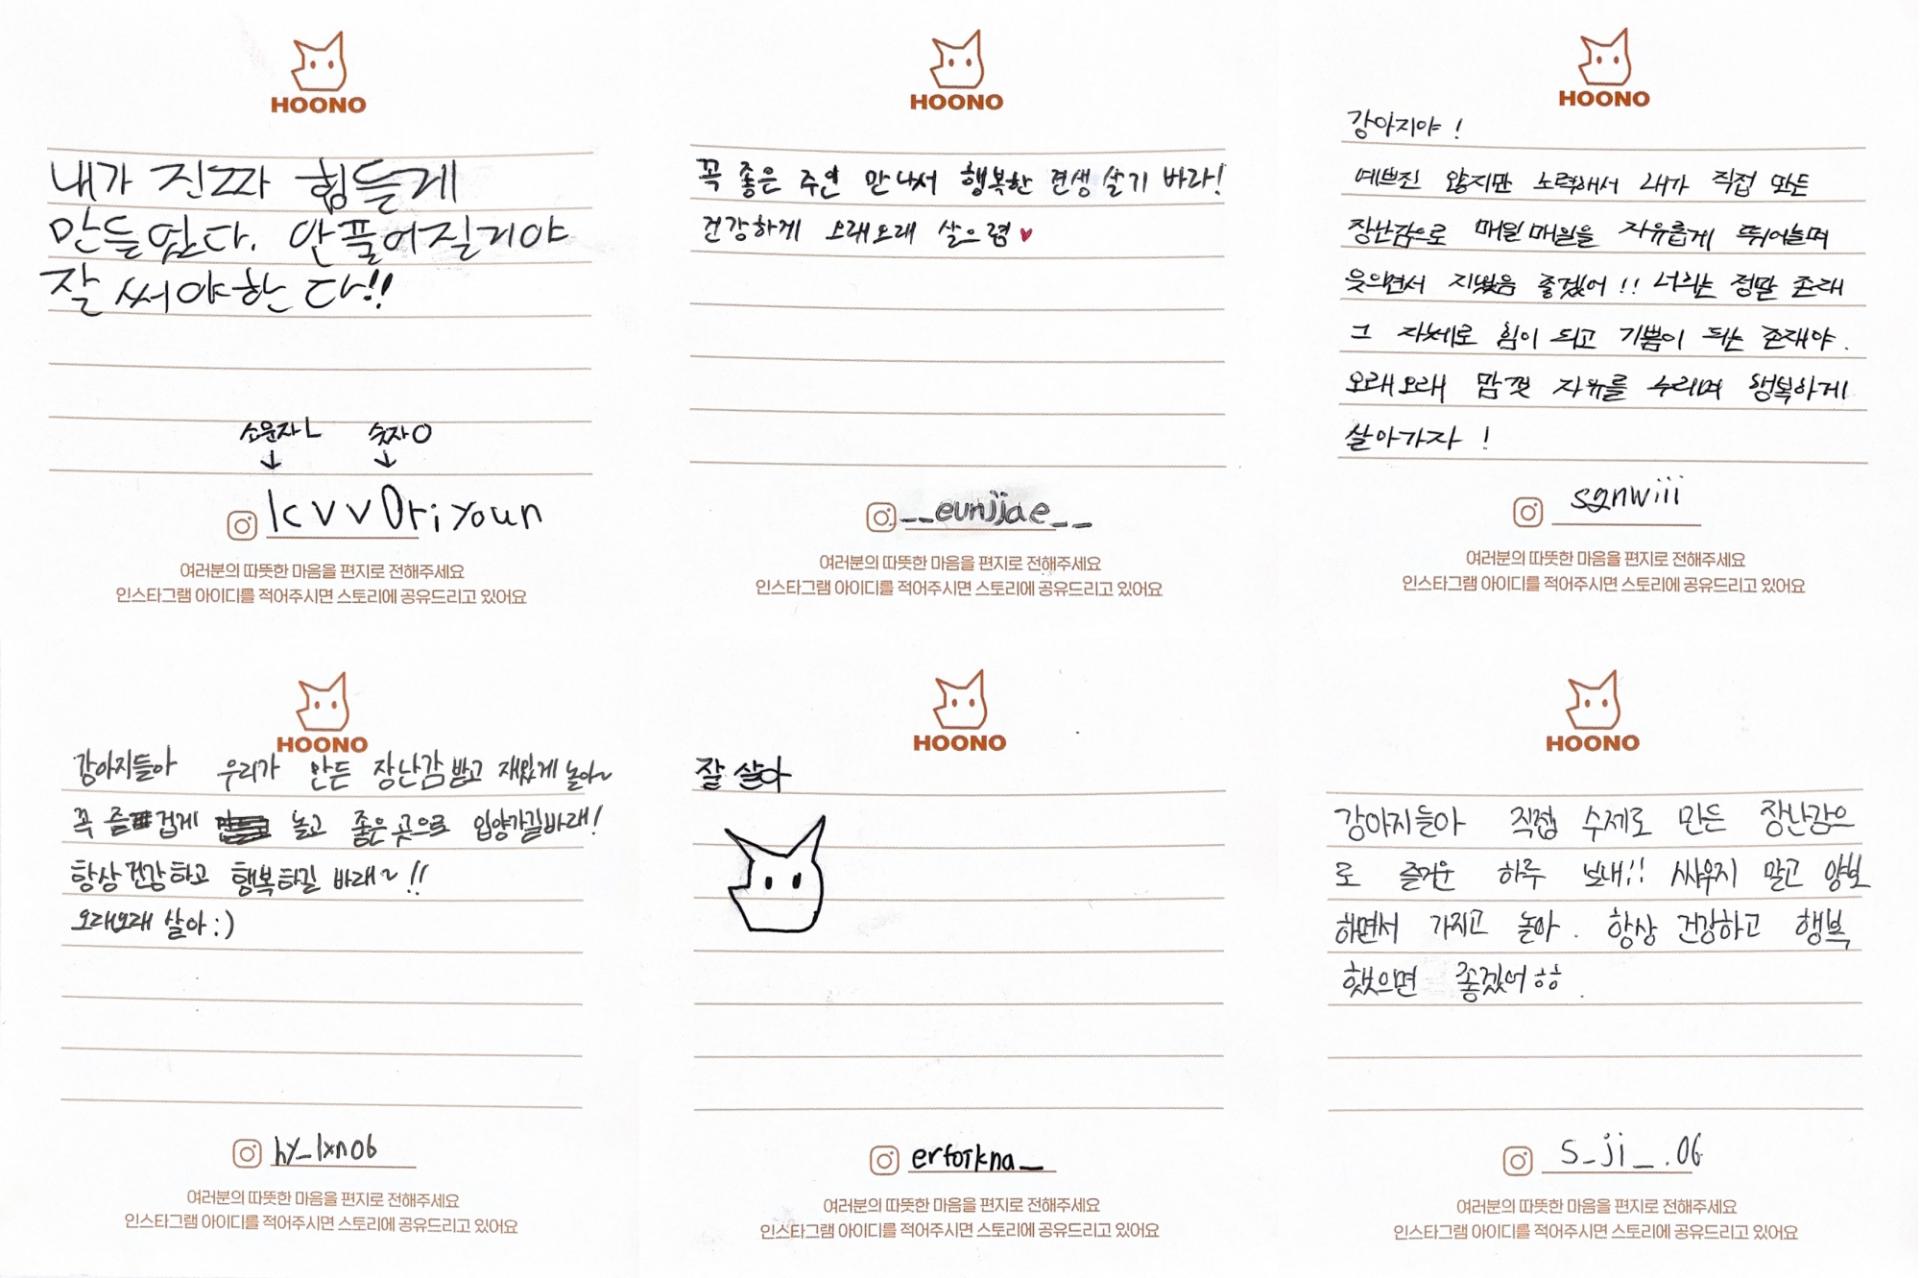 HOONO
내가 진짜 힘들게
만들었다. 안풀어질거야
잘 써야한다!!
소문자L 숫자0
lcvv0riyoun
여러분의 따뜻한 마음을 편지로 전해주세요
인스타그램 아이디를 적어주시면 스토리에 공유드리고 있어요
HOONO
꼭 좋은 주인 만나서 행복한 견생 살기 바라!
건강하게 오래오래 살으렴♥
__eunjjae__
여러분의 따뜻한 마음을 편지로 전해주세요
인스타그램 아이디를 적어주시면 스토리에 공유드리고 있어요
HOONO
강아지야!
예쁘진 않지만 노력해서 내가 직접 만든
장난감으로 매일매일을 자유롭게 뛰어놀며
웃으면서 지냈음 좋겠어!! 너희는 정말 존재
그 자체로 힘이 되고 기쁨이 되는 존재야.
오래오래 맘껏 자유를 누리며 행복하게
살아가자!
sgnwiii
여러분의 따뜻한 마음을 편지로 전해주세요
인스타그램 아이디를 적어주시면 스토리에 공유드리고 있어요
HOONO
강아지들아 우리가 만든 장난감 받고 재밌게 놀아~
꼭 즐겁게 놀고 좋은 곳으로 입양가길바래!
항상 건강하고 행복하길 바래~!!
오래오래 살아:)
hy_lxn06
여러분의 따뜻한 마음을 편지로 전해주세요
인스타그램 아이디를 적어주시면 스토리에 공유드리고 있어요
HOONO
잘 살아
erfoikna_
여러분의 따뜻한 마음을 편지로 전해주세요
인스타그램 아이디를 적어주시면 스토리에 공유드리고 있어요
HOONO
강아지들아 직접 수제로 만든 장난감으
로 즐거운 하루 보내!! 싸우지 말고 양보
하면서 가지고 놀아. 항상 건강하고 행복
했으면 좋겠어ㅎㅎ.
s_ji_.06
여러분의 따뜻한 마음을 편지로 전해주세요
인스타그램 아이디를 적어주시면 스토리에 공유드리고 있어요